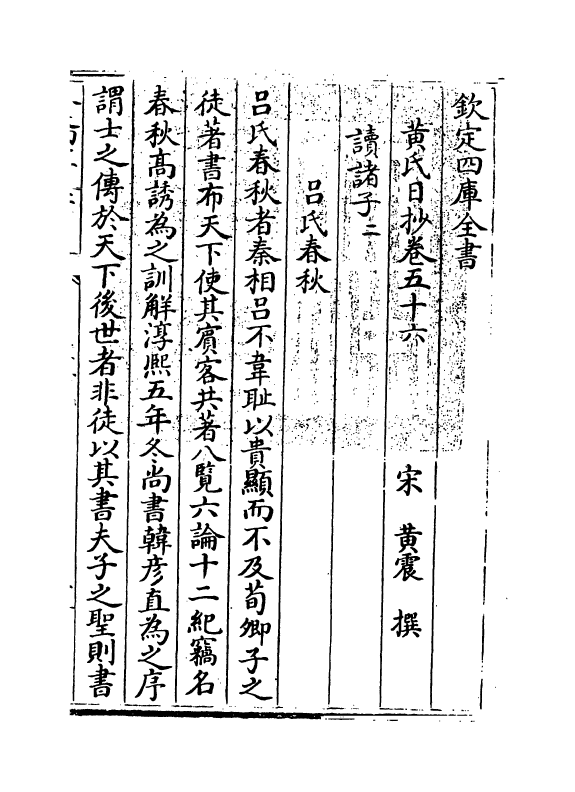 欽定四庫全書
黃氏日抄卷五十六　宋　黃震　撰
讀諸子二
呂氏春秋
呂氏春秋者秦相呂不韋耻以貴顯而不及荀卿子之
徒著書布天下使其賓客共著八覽六論十二紀竊名
春秋髙誘為之訓解淳熙五年冬尚書韓彦直為之序
謂士之傳於天下後世者非徒以其書夫子之聖則書